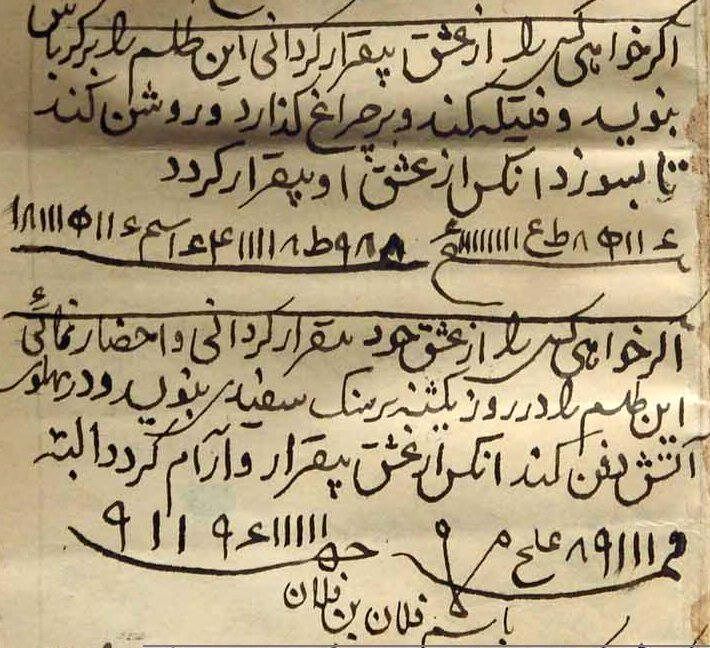 اگر خواهی کسی را از عشق بیقرار گردانی این طلسم را بر کرباس
بنویسد و فتیله کند و بر چراغ گذارد و روشن کند
تا بسوزد آنکس از عشق او بیقرار گردد
ع ۱۱ ۸ ط ع ۱۱۱۱۱۱۱۱
۸ ۹ ط ۸ ۱۱۱۱ ع اسم ع ۱۱ ۱۱۱۸
اگر خواهی کسی را از عشق خود بیقرار گردانی و احضار نمائی
این طلسم را در روز یکشنبه بر سنگ سفیدی بنویسد و در پهلوی
آتش دفن کند آنکس از عشق بیقرار و آرام گردد البته
۱۱۱۹۸ علح م ۱۱۱۱۱۱ ع ۹ ۱ ۱ ۹
باسم فلان بن فلان